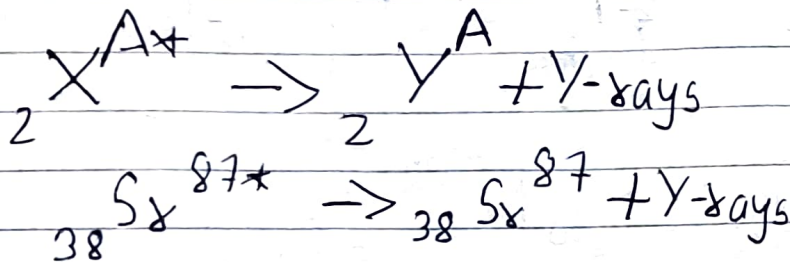 ₂X^A* → ₂Y^A + γ-rays
₃₈Sr^87* → ₃₈Sr^87 + γ-rays